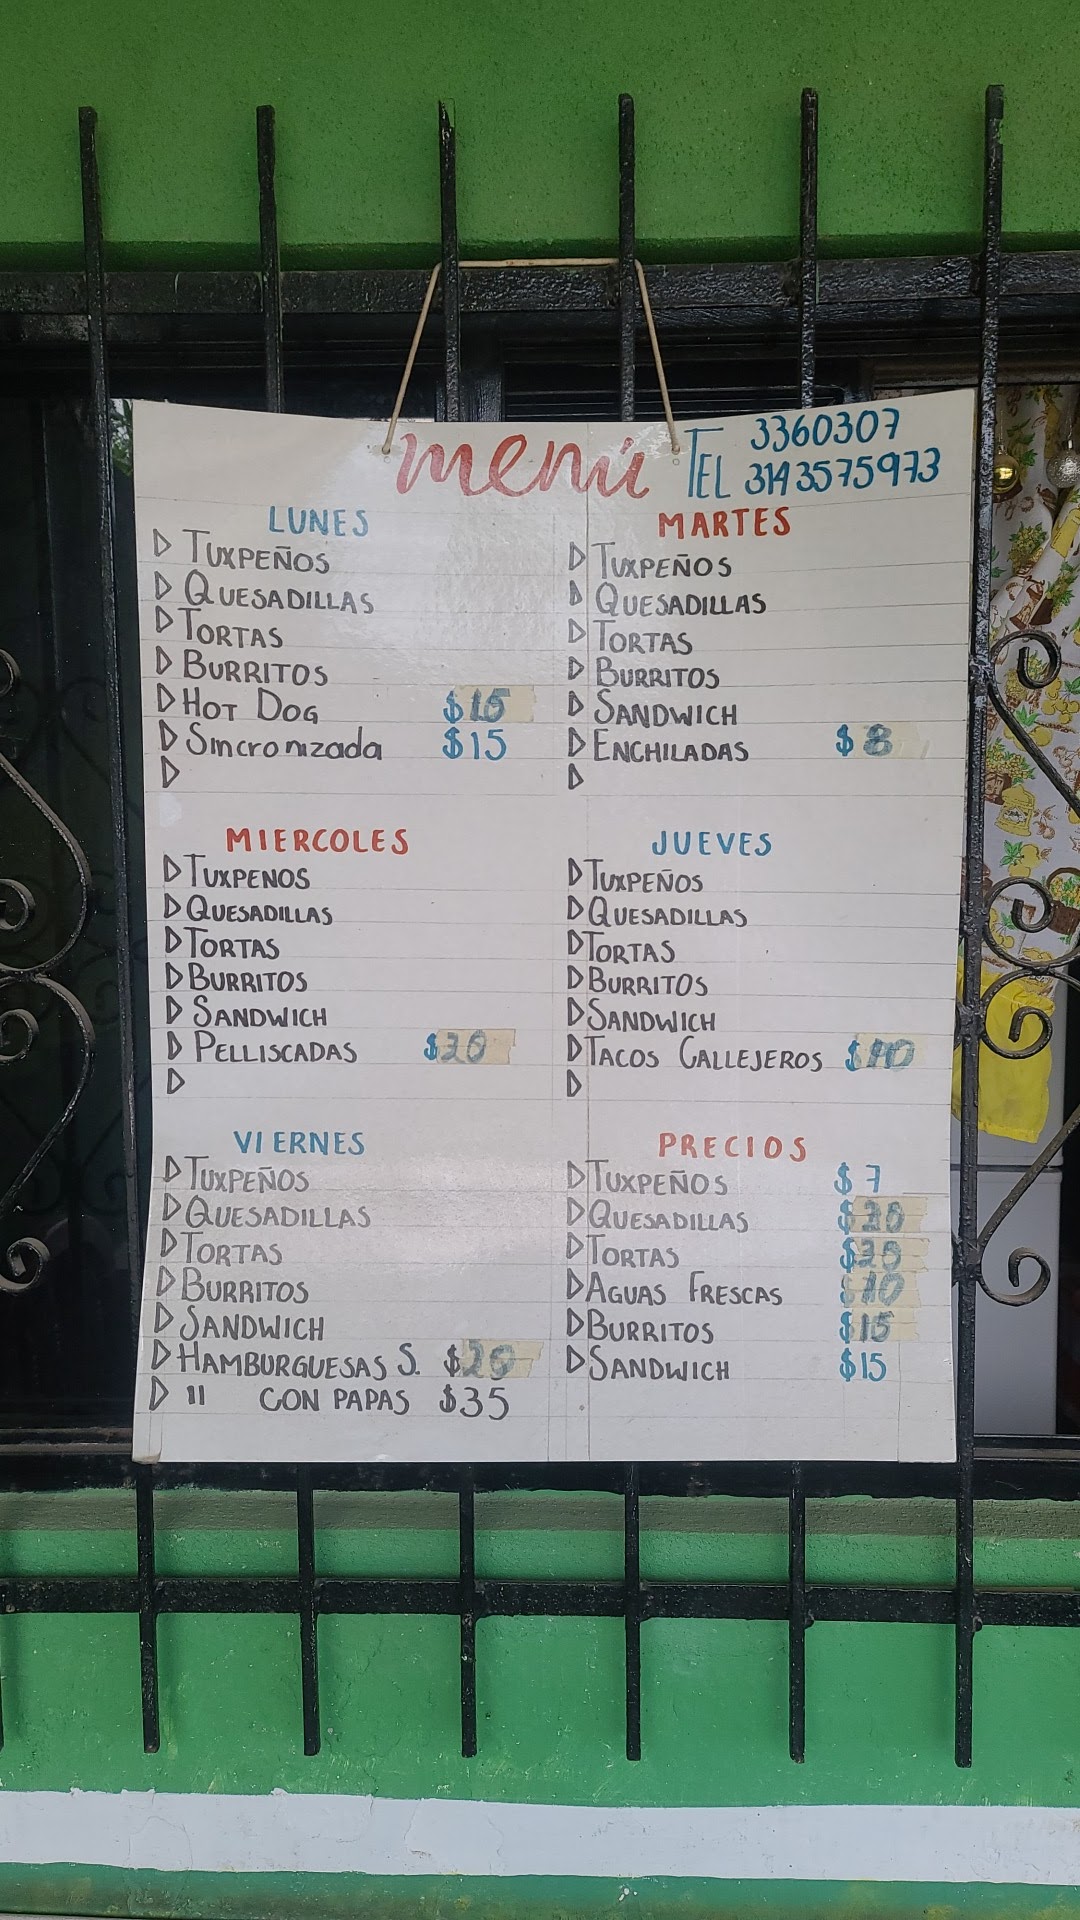 menú
TEL 3360307
3143575973
LUNES
TUXPEÑOS
QUESADILLAS
TORTAS
BURRITOS
HOT DOG $15
Sincronizada $15
MARTES
TUXPEÑOS
QUESADILLAS
TORTAS
BURRITOS
SANDWICH
ENCHILADAS $8
MIERCOLES
TUXPENOS
QUESADILLAS
TORTAS
BURRITOS
SANDWICH
PELLISCADAS
JUEVES
TUXPEÑOS
QUESADILLAS
TORTAS
BURRITOS
SANDWICH
TACOS CALLEJEROS
VIERNES
TUXPEÑOS
QUESADILLAS
TORTAS
BURRITOS
SANDWICH
HAMBURGUESAS S.
" CON PAPAS $35
PRECIOS
TUXPEÑOS $7
QUESADILLAS
TORTAS
AGUAS FRESCAS $10
BURRITOS $15
SANDWICH $15